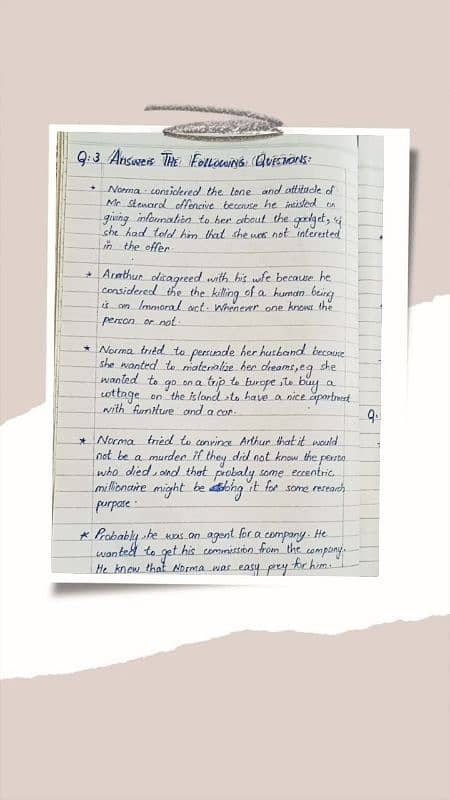 Q:3 Answers The Following Questions:
* Norma considered the tone and attitude of
Mr Steward offencive because he insisted on
giving information to her about the gadget,
she had told him that she was not interested
in the offer.
* Arathur disagreed with his wife because he
considered the the killing of a human being
is an Immoral act. Whenever one knows the
person or not.
* Norma tried to persuade her husband because
she wanted to materialize her dreams, eg she
wanted to go on a trip to Europe, to buy a
cottage on the island, to have a nice apartment
with furniture and a car.
* Norma tried to convince Arthur that it would
not be a murder if they did not know the person
who died, and that probaly some eccentric
millionaire might be doing it for some research
purpose.
* Probably, he was an agent for a company. He
wanted to get his commission from the company.
He knew that Norma was easy prey for him.
Q.